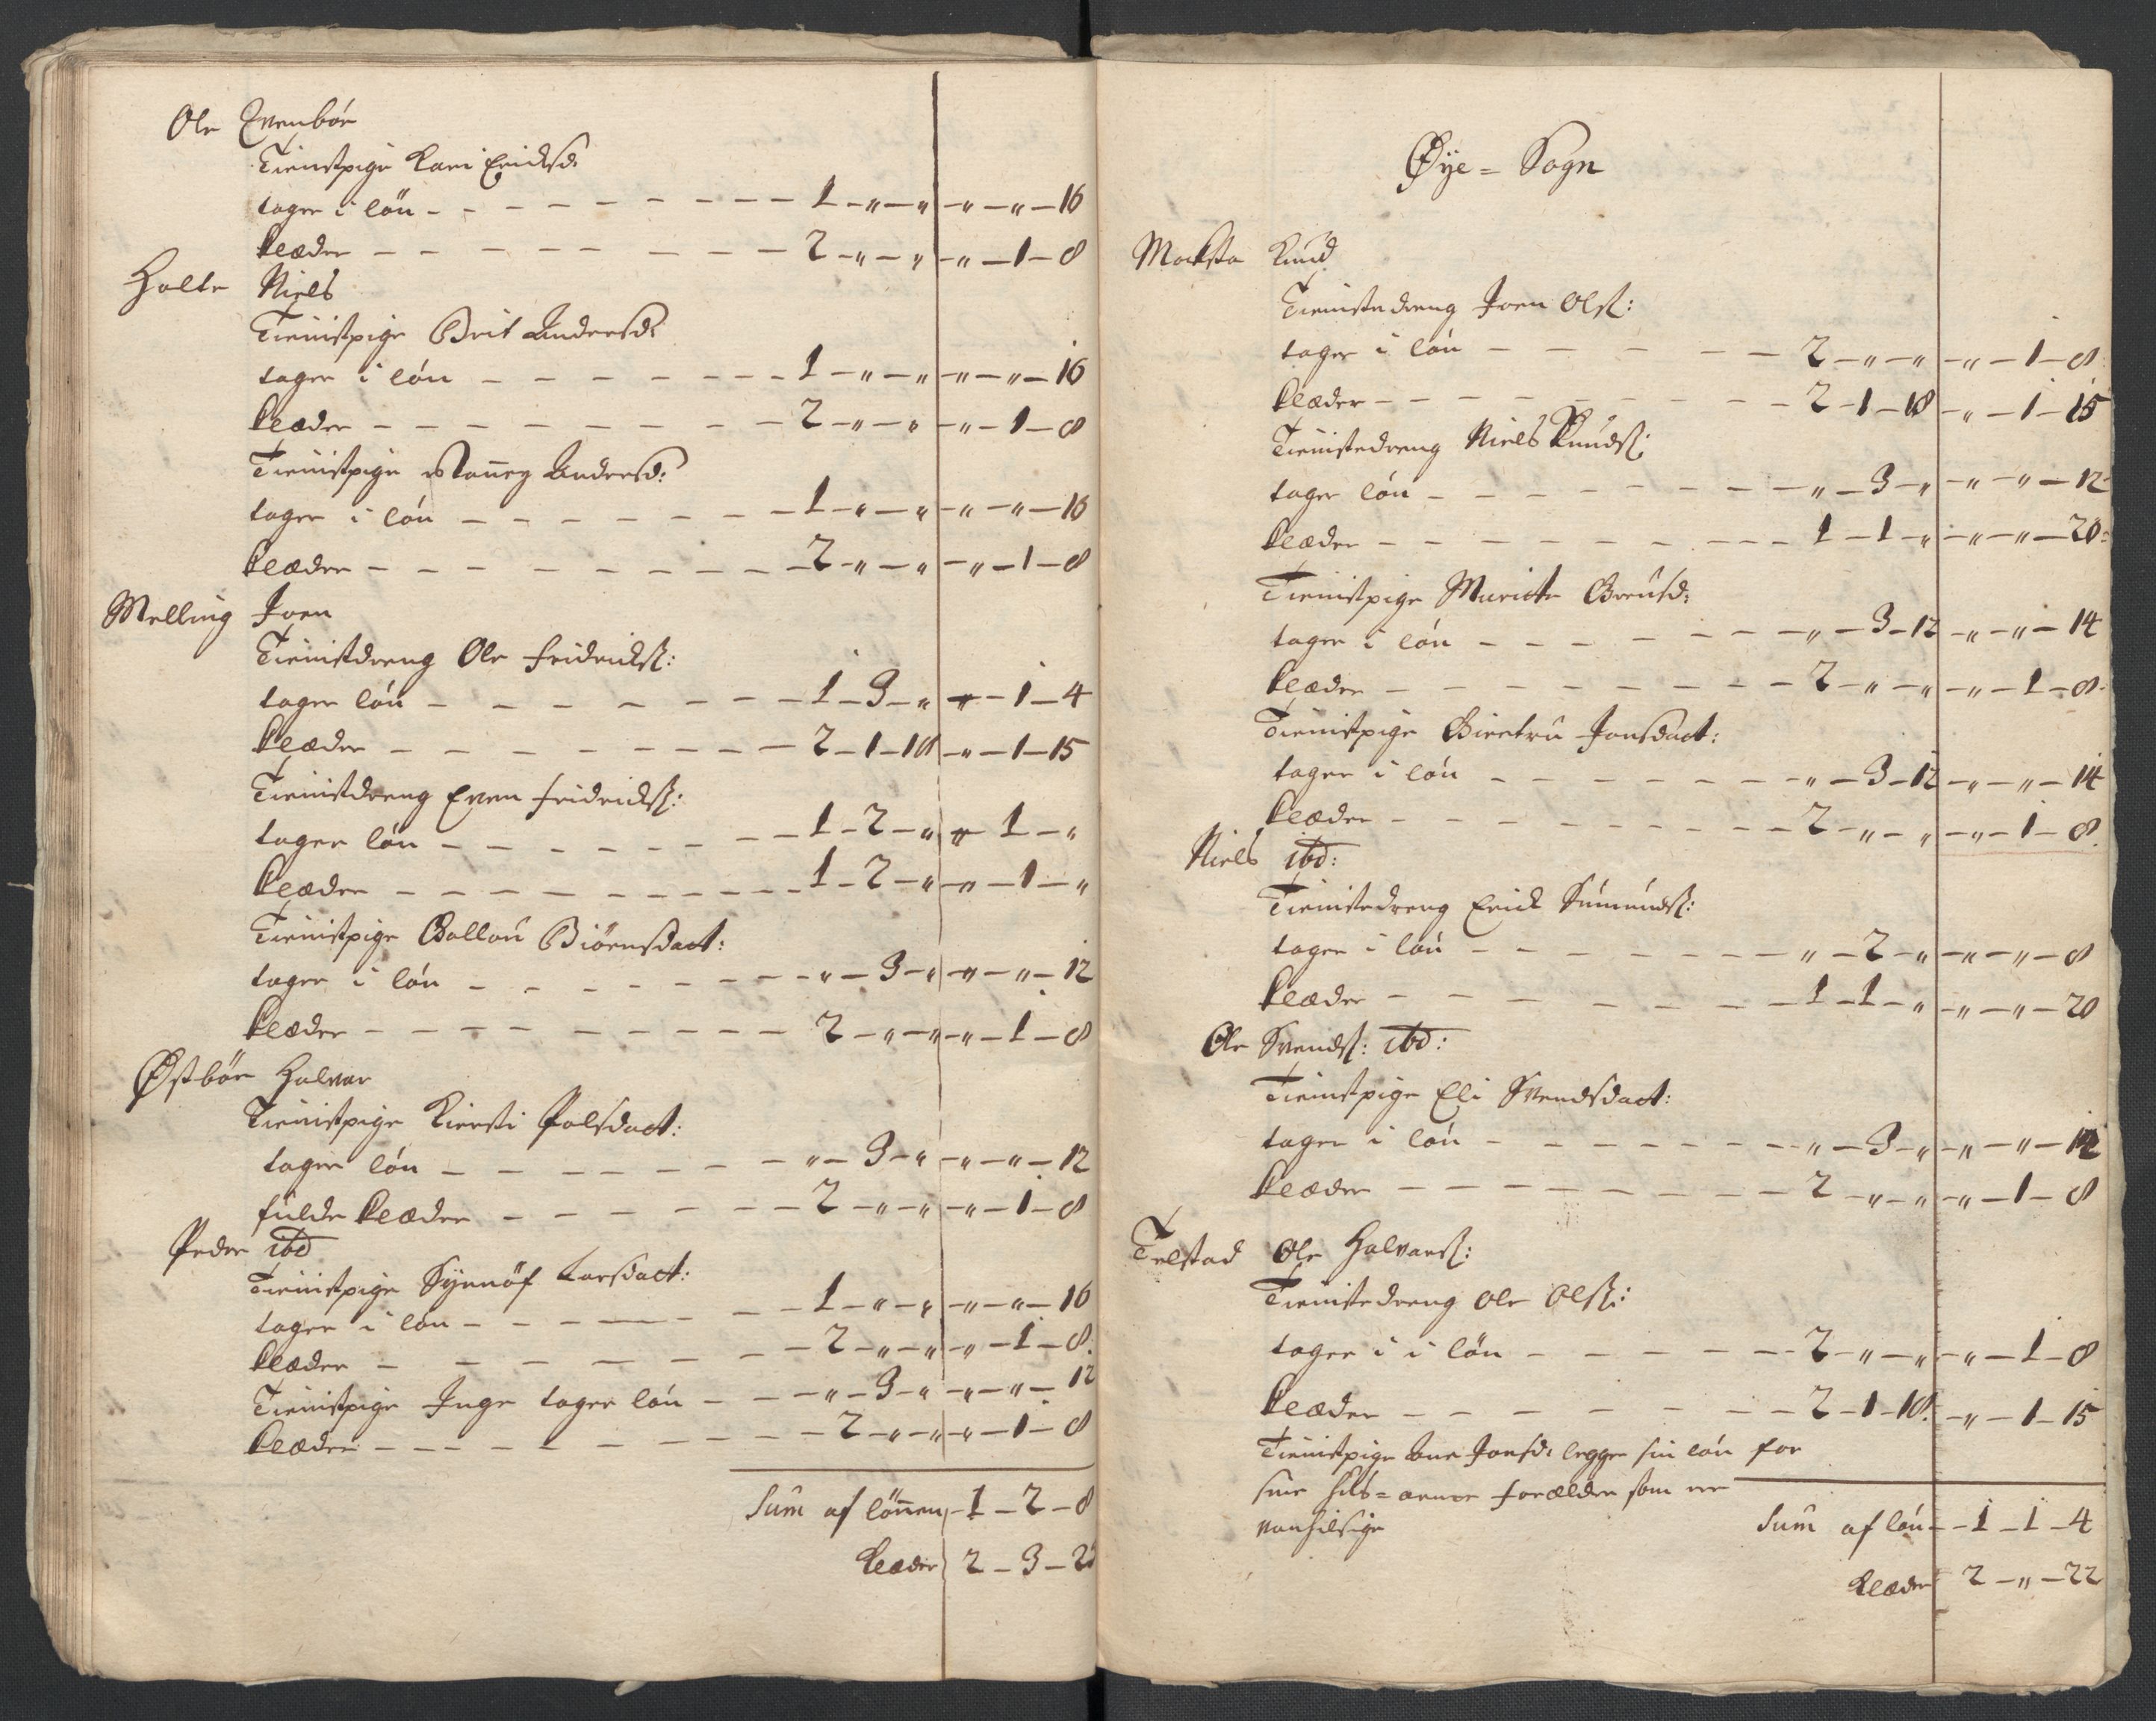 Ole Evenbøe
Tienistpige Kari Erichsd:
tager i løn - - - - - - - - - 1 - „ - „ - „ - „ - 16
klæder - - - - - - - - 2 - „ - „ - „ - 1 - 8
Holte Niels
Tienistpige Brit Andersd:
tager i løn - - - - - - - 1 - „ - „ - „ - „ - 16
klæder - - - - - - - - 2 - „ - „ - „ - 1 - 8
Tienistpige Andersd:
tager i løn - - - - - - - 1 - „ - „ - „ - „ - 16
klæder - - - - - - - - - 2 - „ - „ - „ - 1 - 8
Melling Joen
Tienistdreng Ole Fridrichs:
tager løn - - - - - - - 1 - 3 - „ - „ - 1 - 4
klæder - - - - - - - - 2 - 1 - 18 - „ - 1 - 15
Tienistdreng Even Fridrichs:
tager løn - - - - - - - 1 - 2 - „ - „ - 1 - „
klæder - - - - - - - - 1 - 2 - „ - „ - 1 - „
Tienistpige Gollou Biörnsdaat:
tager i løn - - - - - - - „ - 3 - „ - „ - „ - 12
klæder - - - - - - - - - 2 - „ - „ - „ - 1 - 8
Østbøe Halvor
Tienistpige Kiersti Polsdaat:
tager løn - - - - - - - „ - 3 - „ - „ - „ - 12
fulde klæder - - - - - - 2 - „ - „ - „ - 1 - 8
Peder ibd
Tienistpige Synnöf Larsdaat:
tager i løn - - - - - - 1 - „ - „ - „ - „ - 16
klæder - - - - - - - 2 - „ - „ - „ - 1 - 8.
Tienistpige Inge tager løn - - - „ - 3 - „ - „ - „ - 12
klæder - - - - - - - - - 2 - „ - „ - „ - 1 - 8
Sum af lönnen - 1 - 2 - 8
klæder 2 - 3 -
Øye = Sogn
Moksta Knud
Tienistedreng Joen Ols:
tager i løn - - - - - - 2 - „ - „ - „ - 1 - 8
klæder - - - - - - - - 2 - 1 - 18 - „ - 1 - 15
Tienistedreng Niels Knuds:
tager løn - - - - - - - - „ - 3 - „ - „ - „ - 12
klæder - - - - - - - - 1 - 1 - „ - „ - „ - 20:
Tienistpige Marite Gieusd:
tager i løn - - - - - - - „ - 3 - 12 - „ - „ - 14
klæder - - - - - - - - 2 - „ - „ - „ - 1 - 8.
Tienistpige Giertru Jonsdaat:
tager i løn - - - - - - - „ - 3 - 12 - „ - „ - 14
klæder - - - - - - - - - 2 - „ - „ - „ - 1 - 8.
Niels ibd:
Tienistedreng Erick Sumunds:
tager i løn - - - - - - - „ - 2 - „ - „ - „ - 8
klæder - - - - - - - 1 - 1 - „ - „ - „ - 20
Ole Svends: ibd:
Tienistpige Eli Svendsdaat:
tager i løn - - - - - - - „ - 3 - „ - „ - „ - 12
klæder - - - - - - - - 2 - „ - „ - „ - 1 - 8
Telstad Ole Halvors:
Tienistedreng Ole Ols:
tager i i løn - - - - - - 2 - „ - „ - „ - 1 - 8
klæder - - - - - - - - 2 - 1 - 18. - „ - 1 - 15
Tienistpige Ane Jonsd: legger sin løn for
sine huus = arme forælder som ere
vanhilsige
Sum af løn - - 1 - 1 - 4
klæder 2 - „ - 22